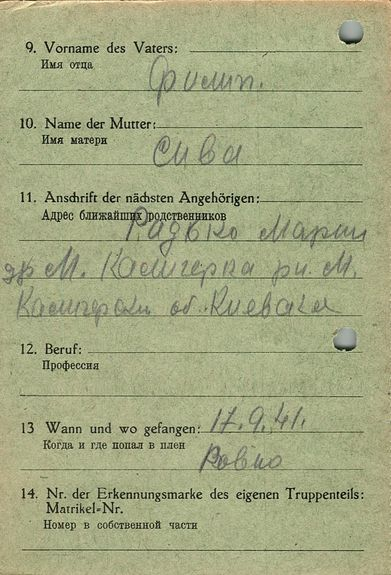 9. Vorname des Vaters:
Имя отца
Филип.
10. Name der Mutter:
Имя матери
Сива
11. Anschrift der nächsten Angehörigen:
Адрес ближайших родственников
Радько Марии
М. Калигерка М.
об. Киевская
12. Beruf:
Профессия
13 Wann und wo gefangen: 17.9.41.
Когда и где попал в плен
Ровно
14. Nr. der Erkennungsmarke des eigenen Truppenteils:
Matrikel=Nr.
Номер в собственной части